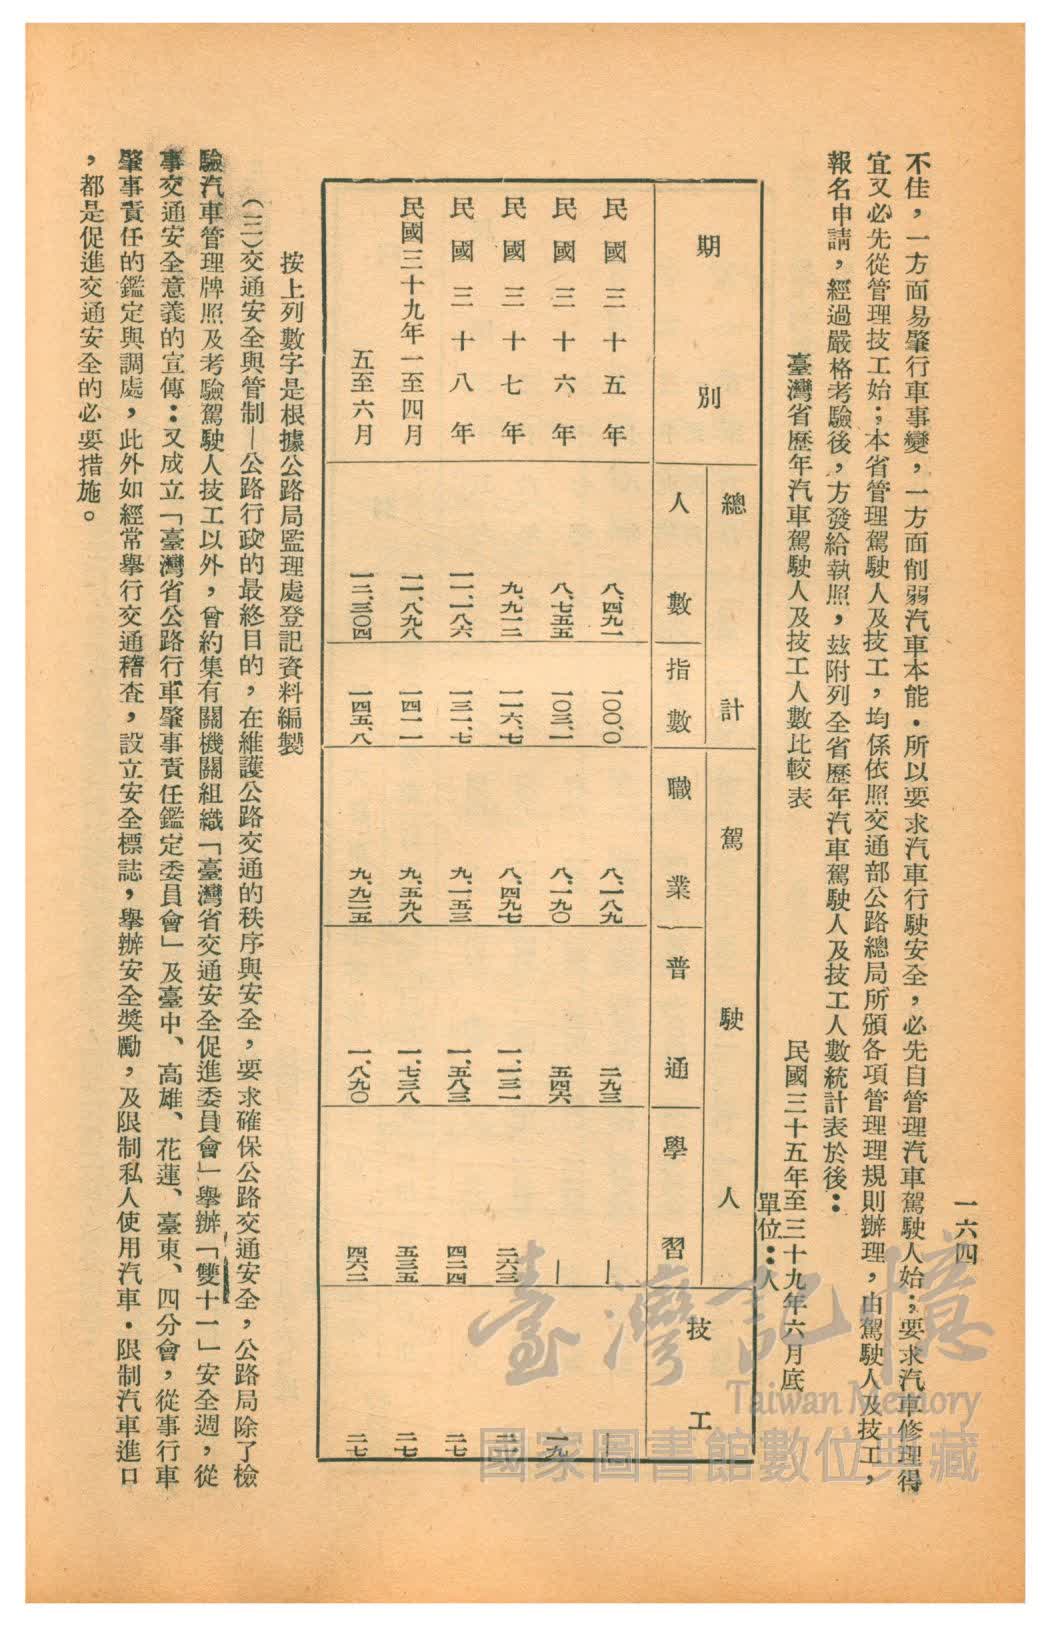 一六四
不佳，一方面易肇行車事變，一方面削弱汽車本能．所以要求汽車行駛安全，必先自管理汽車駕駛人始；要求汽車修理得
宜又必先從管理技工始；本省管理駕駛人及技工，均係依照交通部公路總局所頒各項管理規則辦理，由駕駛人及技工，
報名申請，經過嚴格考驗後，方發給執照，茲附列全省歷年汽車駕駛人及技工人數統計表於後：
臺灣省歷年汽車駕駛人及技工人數比較表
民國三十五年至三十九年六月底
單位：人
期別 總計 駕駛人 技工
人數 指數 職業 普通 學習
民國三十五年 八、四九一 一〇〇、〇 八、一八九 二九三 —
民國三十六年 八、七五五 一〇三、一 八、一九〇 五四六 — 一九
民國三十七年 九、九一二 一一六、七 八、四九七 一、一三一 二六三 二一
民國三十八年 一一、一八六 一三一、七 九、一五三 一、五八三 四二四 二七
民國三十九年一至四月 一一、八九八 一四一、一 九、五九八 一、七三八 五三五 二七
五至六月 一二、三〇四 一四五、八 九、九二五 一、八九〇 四六二 二七
按上列數字是根據公路局監理處登記資料編製
（三）交通安全與管制—公路行政的最終目的，在維護公路交通的秩序與安全，要求確保公路交通安全，公路局除了檢
驗汽車管理牌照及考驗駕駛人技工以外，曾約集有關機關組織「臺灣省交通安全促進委員會」舉辦「雙十一」安全週，從
事交通安全意義的宣傳：又成立「臺灣省公路行車肇事責任鑑定委員會」及臺中、高雄、花蓮、臺東、四分會，從事行車
肇事責任的鑑定與調處，此外如經常舉行交通稽查，設立安全標誌，舉辦安全獎勵，及限制私人使用汽車．限制汽車進口
，都是促進交通安全的必要措施。
臺灣記憶
Taiwan Memory
國家圖書館數位典藏